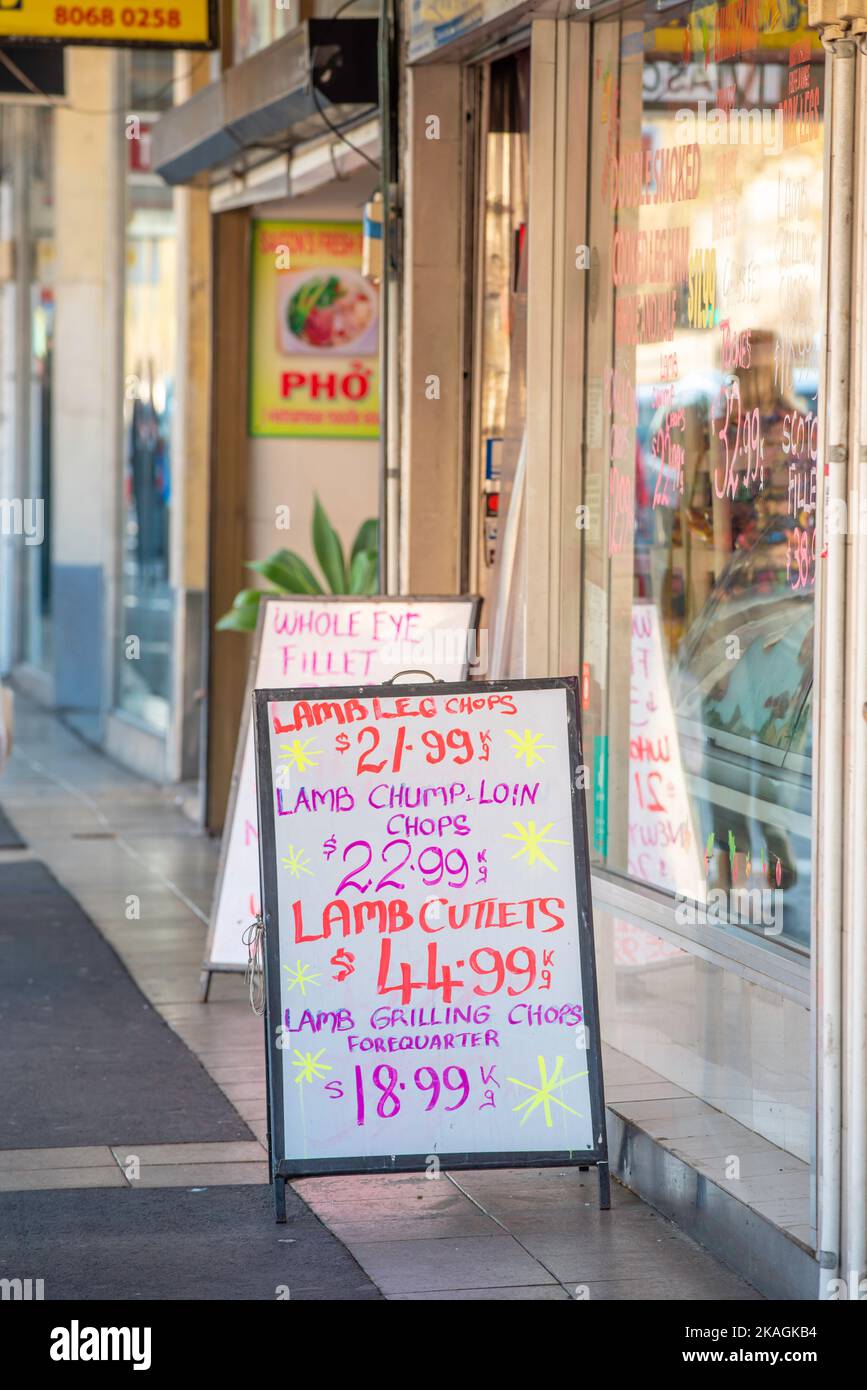 8068 0258
SAIGON'S FRESH
PHỞ
WHOLE EYE
FILLET
LAMB LEG CHOPS
$21.99 Kg
LAMB CHUMP-LOIN
CHOPS
$22.99 Kg
LAMB CUTLETS
$44.99 Kg
LAMB GRILLING CHOPS
FOREQUARTER
$18.99 Kg
DOUBLE SMOKED
$11.99
LAMB
CHOPS
32.99
SCOTCH
FILLET
alamy
Image ID: 2KAGKB4
www.alamy.com